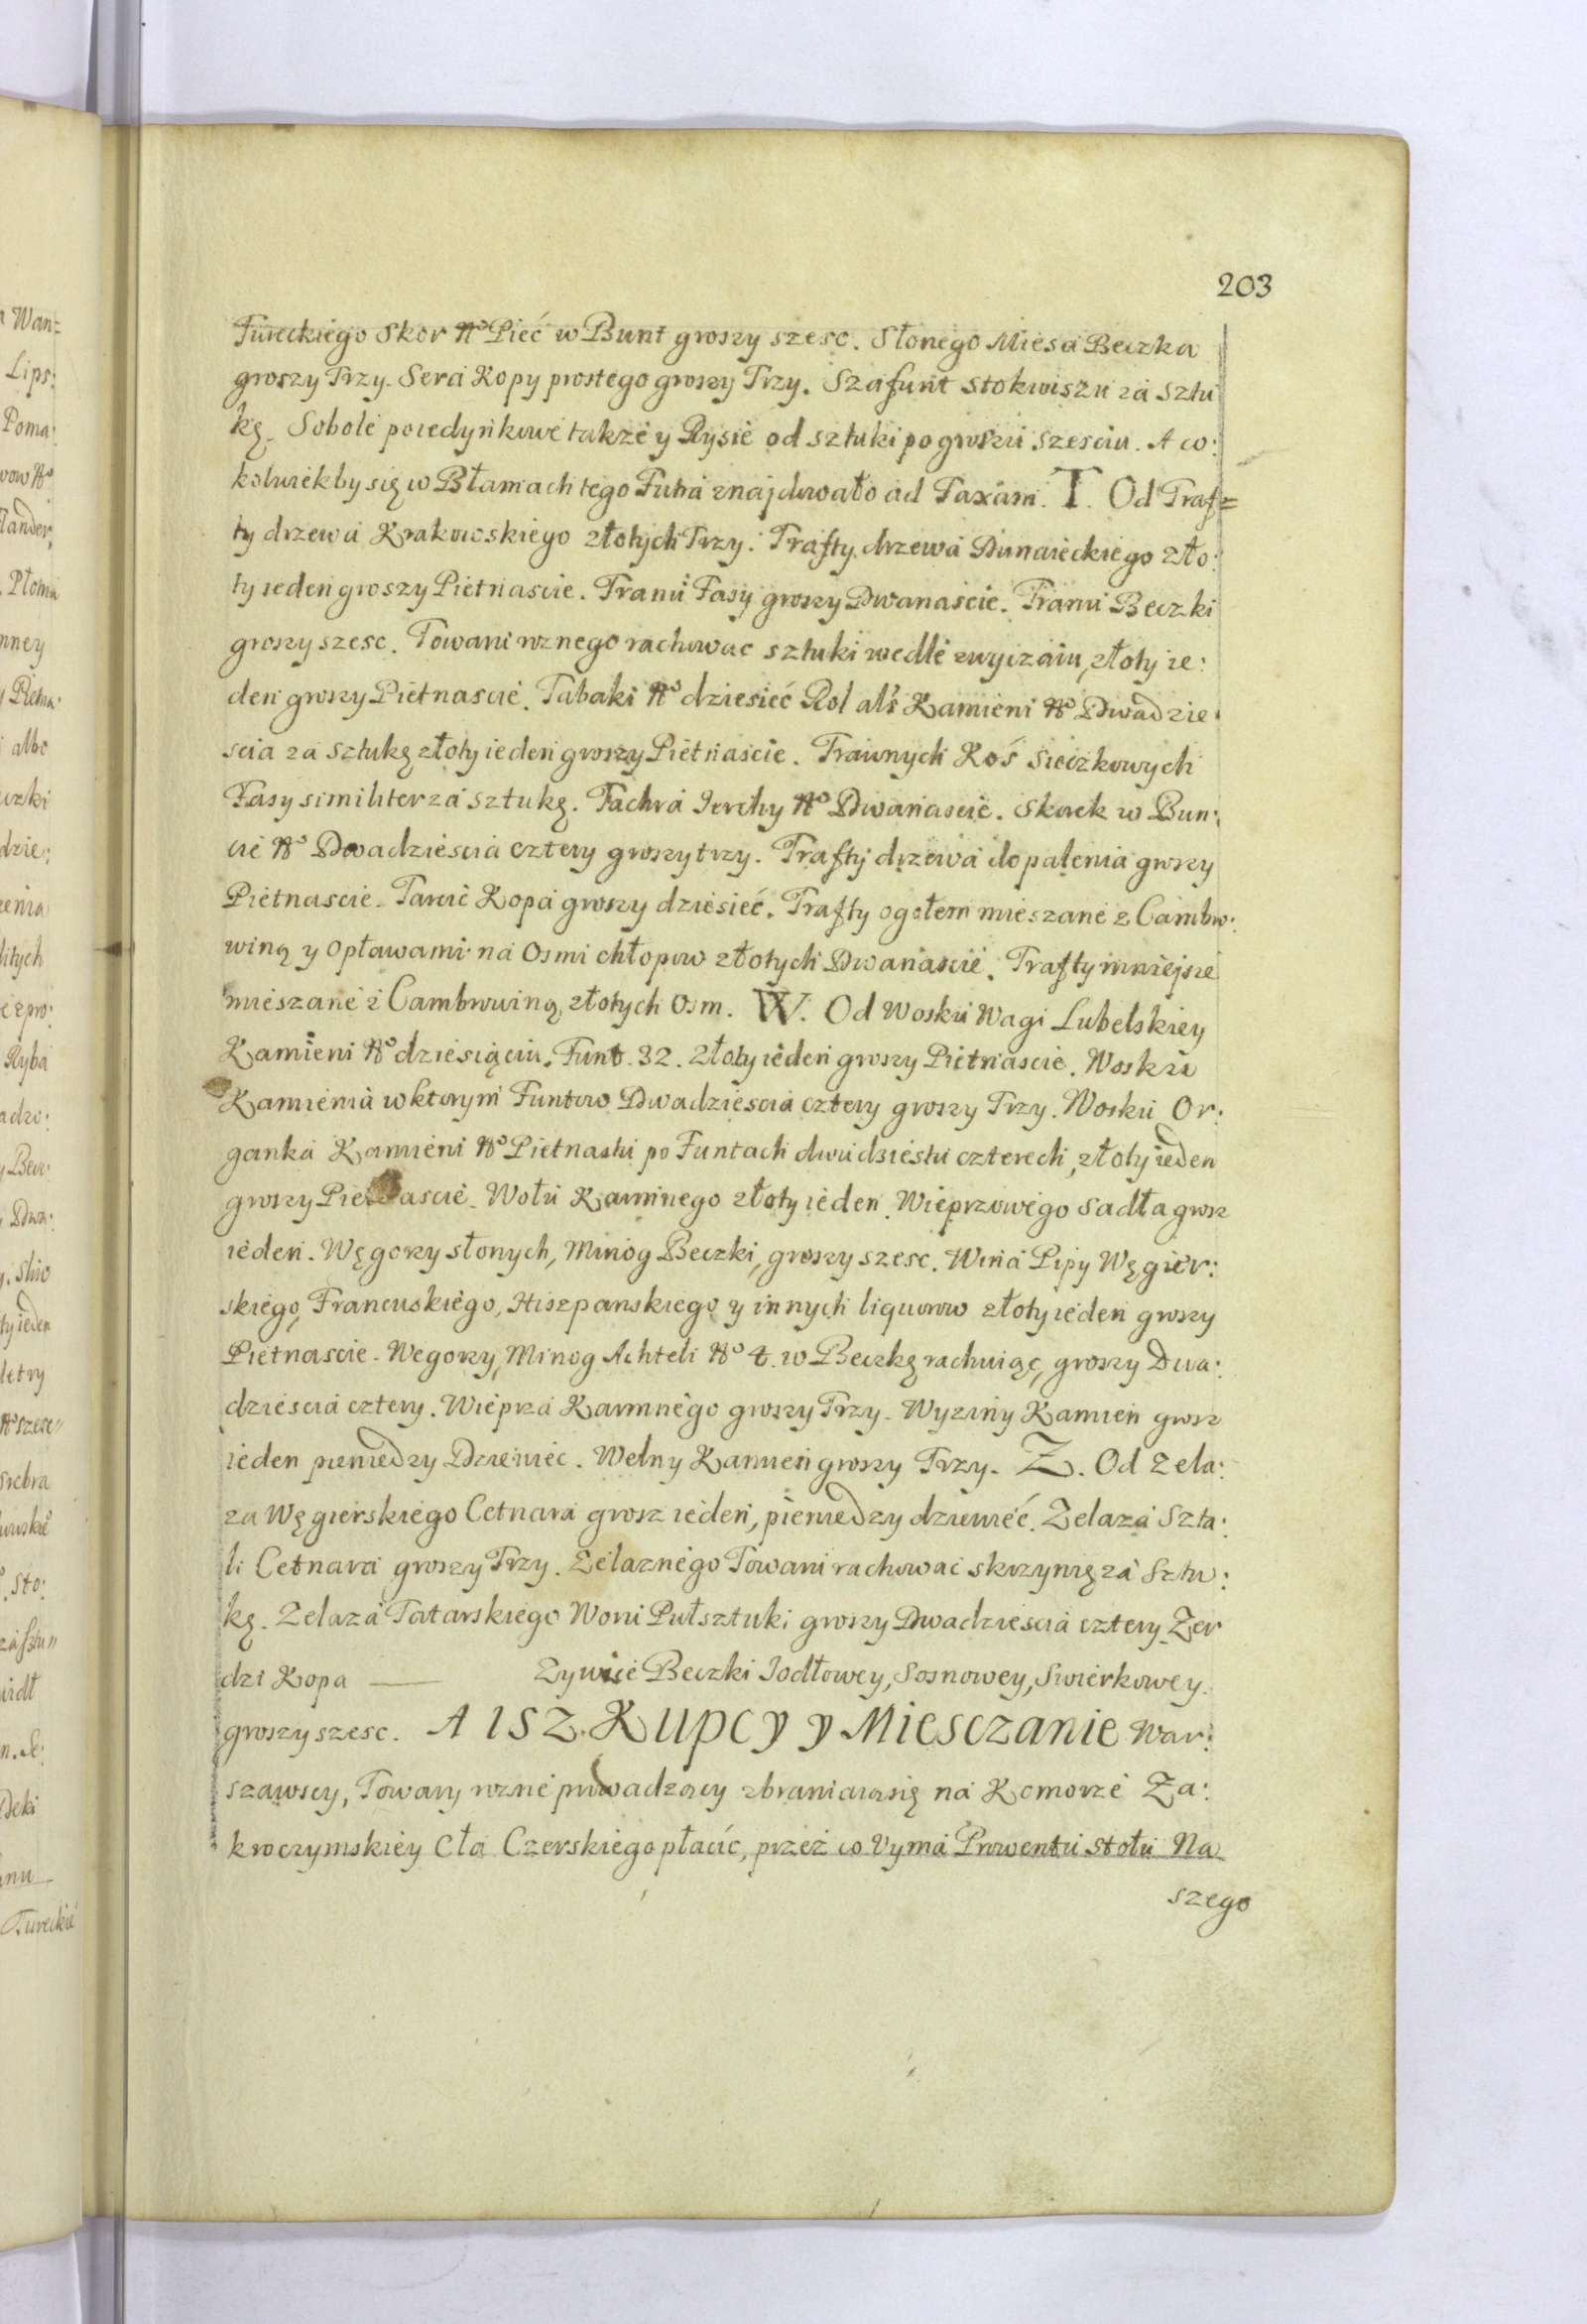 203
Tureckiego Skor No Pieć w Bunt groszy szesc. Słonego Miesa Beczka
groszy Trzy. Sera Kopy prostego groszy Trzy. Szafunt stokwiszu za Sztu
kę. Sobole poiedyńkowe także y Rysie od sztuki po groszu szesciu. A co:
kolwiekby się w Błamach tego Futra znajdowało ad Taxam. T. Od Traf=
ty drzewa Krakowskiego złotych Trzy. Trafty drzewa Dunaieckiego zło:
ty ieden groszy Pietnascie. Tranu Fasy groszy Dwanascie. Tranu Beczki
groszy szesc. Towaru roznego rachowac sztuki wedle zwyczaiu, złoty ie:
den groszy Pietnascie. Tabaki No dziesieć Rol als Kamieni No Dwadzie:
scia za sztukę złoty ieden groszy Pietnascie. Trawnych Koś sieczkowych
Fasy similiter za sztukę. Tachra Jerchy No Dwanascie. Skorek w Bun:
cie No Dwadziescia cztery groszy trzy. Trafty drzewa do palenia groszy
Pietnascie. Tarcic Kopa groszy dziesieć. Trafty ogołem mieszane z Cambro:
winą y Opławami na Osmi chłopow złotych Dwanascie. Trafty mniejsze
mieszane z Cambrowiną, złotych Osm. W. Od Wosku Wagi Lubelskiey
Kamieni No dziesiąciu. Funt. 32. Złoty ieden groszy Pietnascie. Wosku
Kamienia w ktorym Funtow Dwadziescia cztery groszy Trzy. Wosku Or:
ganka Kamieni No Pietnastu po Funtach dwudziestu czterech, złoty ieden
groszy Pietnascie. Wołu Karmnego złoty ieden. Wieprzowego Sadła grosz
ieden. Węgorzy słonych, Minog Beczki, groszy szesc. Wina Pipy Węgier:
skiego, Francuskiego, Hiszpanskiego y innych liquorow złoty ieden groszy
Pietnascie. Wegorzy, Minog Achteli No 4. w Beczkę rachuiąc, groszy Dwa:
dziescia cztery. Wieprza Karmnego groszy Trzy. Wyziny Kamien grosz
ieden pieniedzy Dziewiec. Wełny Kamien groszy Trzy. Z. Od Zela:
za Węgierskiego Cetnara grosz ieden, pieniedzy dziewieć. Zelaza Szta:
li Cetnara groszy Trzy. Zelaznego Towaru rachować skrzynię za Sztu:
kę. Zelaza Tatarskiego Woru Pułsztuki groszy Dwadziescia cztery. Zer
dzi Kopa —— Zywice Beczki Jodłowey, Sosnowey, Swierkowey.
groszy szesc. A ISZ. Kupcy y Miesczanie War:
szawscy, Towary rozne prowadzący zbraniaią się na Komorze Za:
kroczymskiey Cła Czerskiego płacić, przez co Vyma Prowentu stołu Na
szego